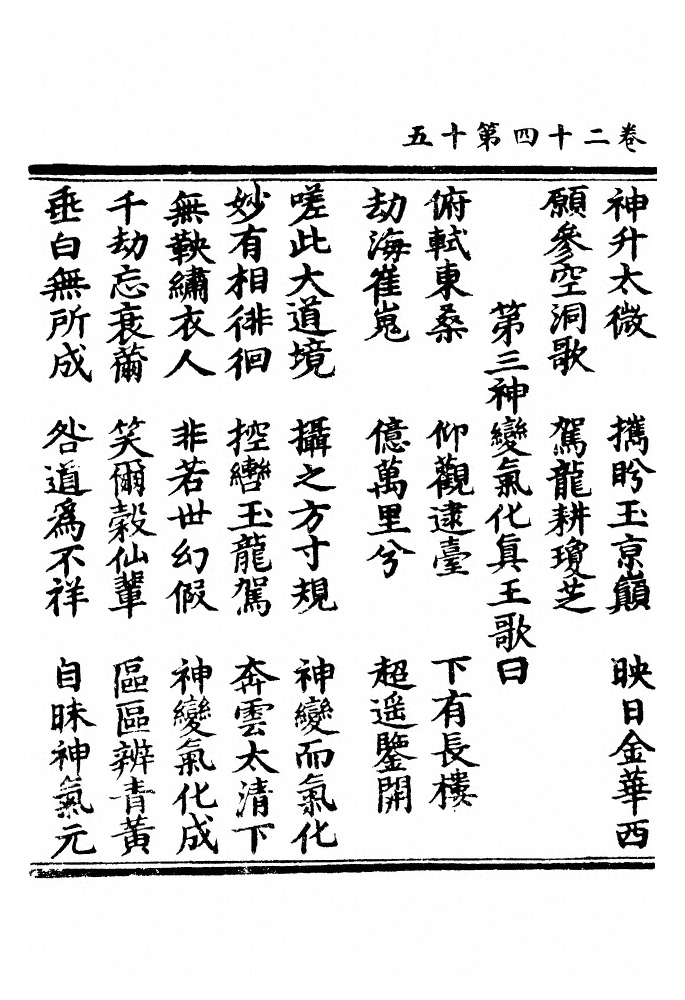 卷二十四第十五
神升太微　攜盻玉京巓　映日金華西
願參空洞歌　駕龍耕瓊芝
第三神變氣化眞王歌曰
俯軾東桑　仰觀逮臺　下有長樓
劫海崔嵬　億萬里兮　超遥鑒開
嗟此大道境　攝之方寸規　神變而氣化
妙有相徘徊　控轡玉龍駕　奔雲太清下
無鞅繡衣人　非若世幻假　神變氣化成
千劫忘衰薾　笑爾穀仙輩　區區辨青黃
垂白無所成　咎道爲不祥　自昧神氣元